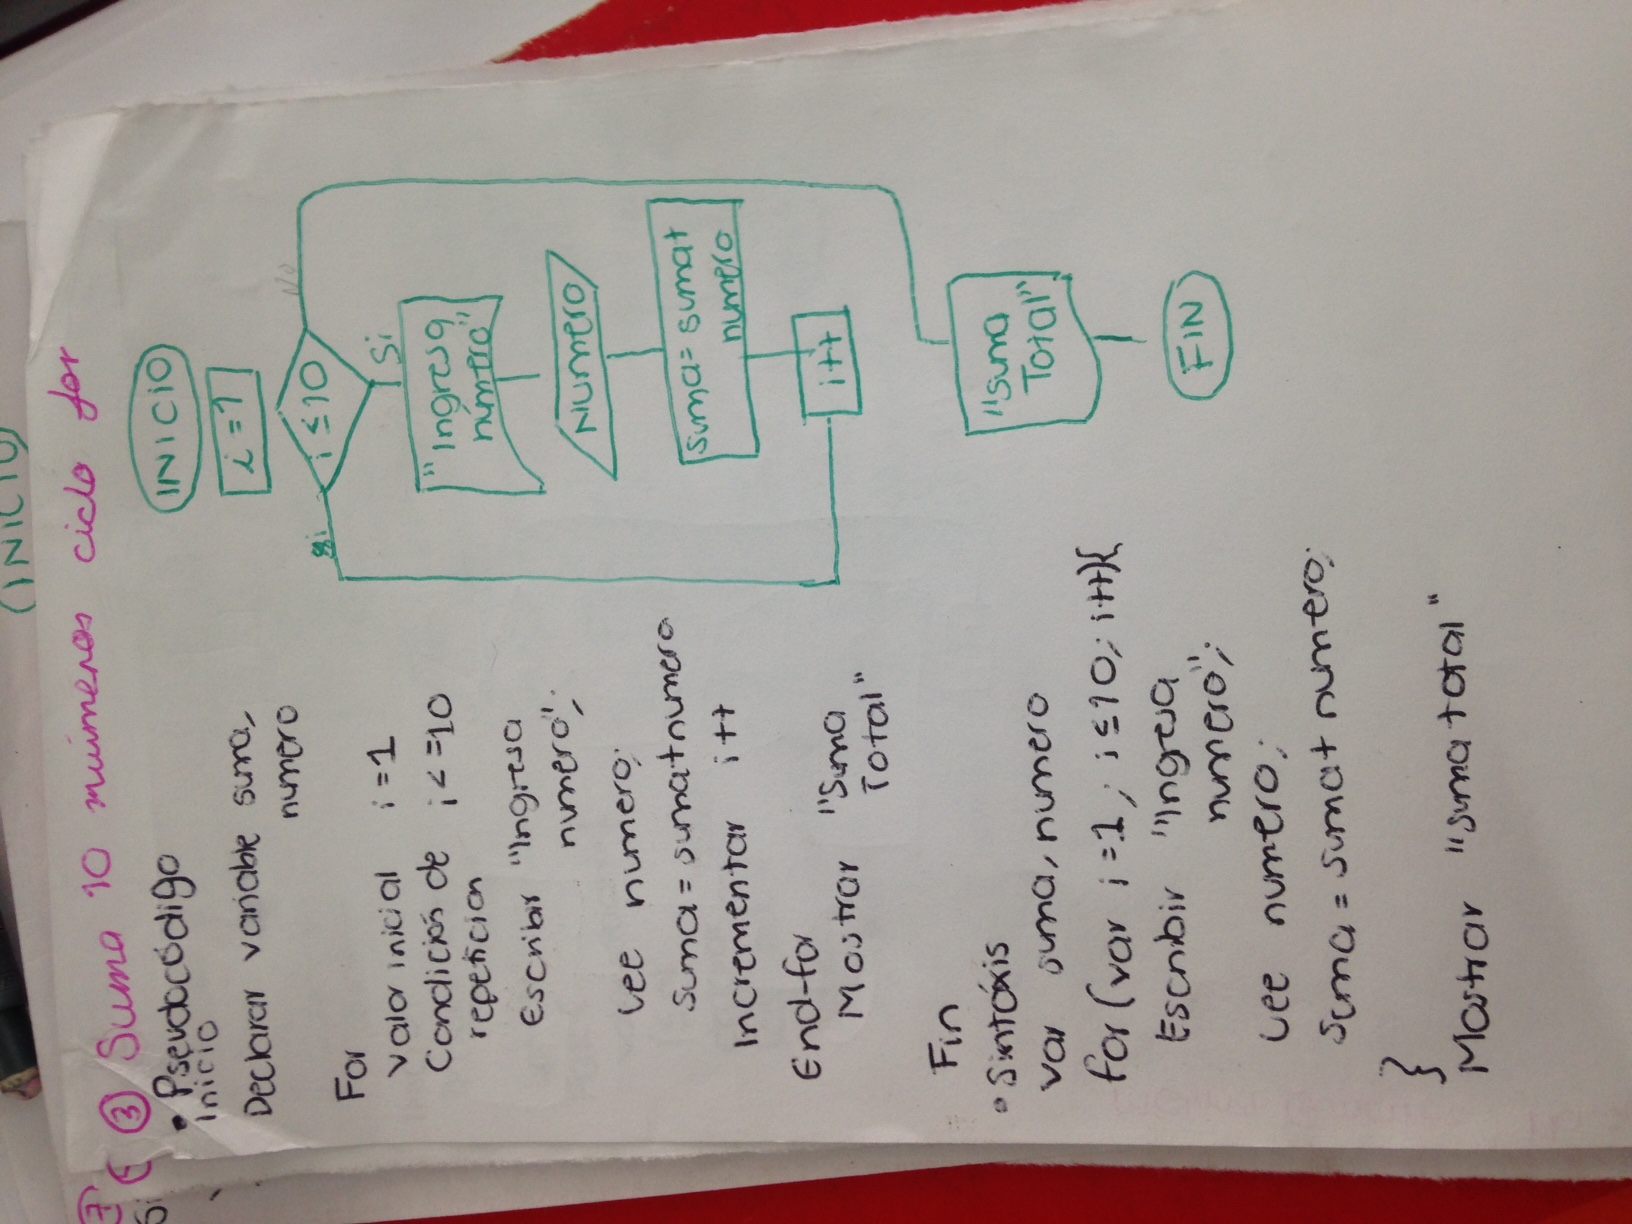 ③ Suma 10 números ciclo for
• Pseudocódigo
inicio
Declarar variable suma,
numero
For
valor inicial i=1
Condición de i<=10
repeticion
escribir "Ingresa
numero";
Lee numero;
suma=suma+numero
Incrementar i++
End-for
Mostrar "Suma
Total"
Fin
• Sintáxis
var suma, numero
for(var i=1; i≤10; i++){
Escribir "Ingresa
numero";
Lee numero;
suma=suma+numero;
}
Mostrar "suma total"
INICIO
i=1
i≤10
si
Si
No
"Ingresa
número"
Numero
suma=suma+
numero
i++
"Suma
Total"
FIN
INICIO